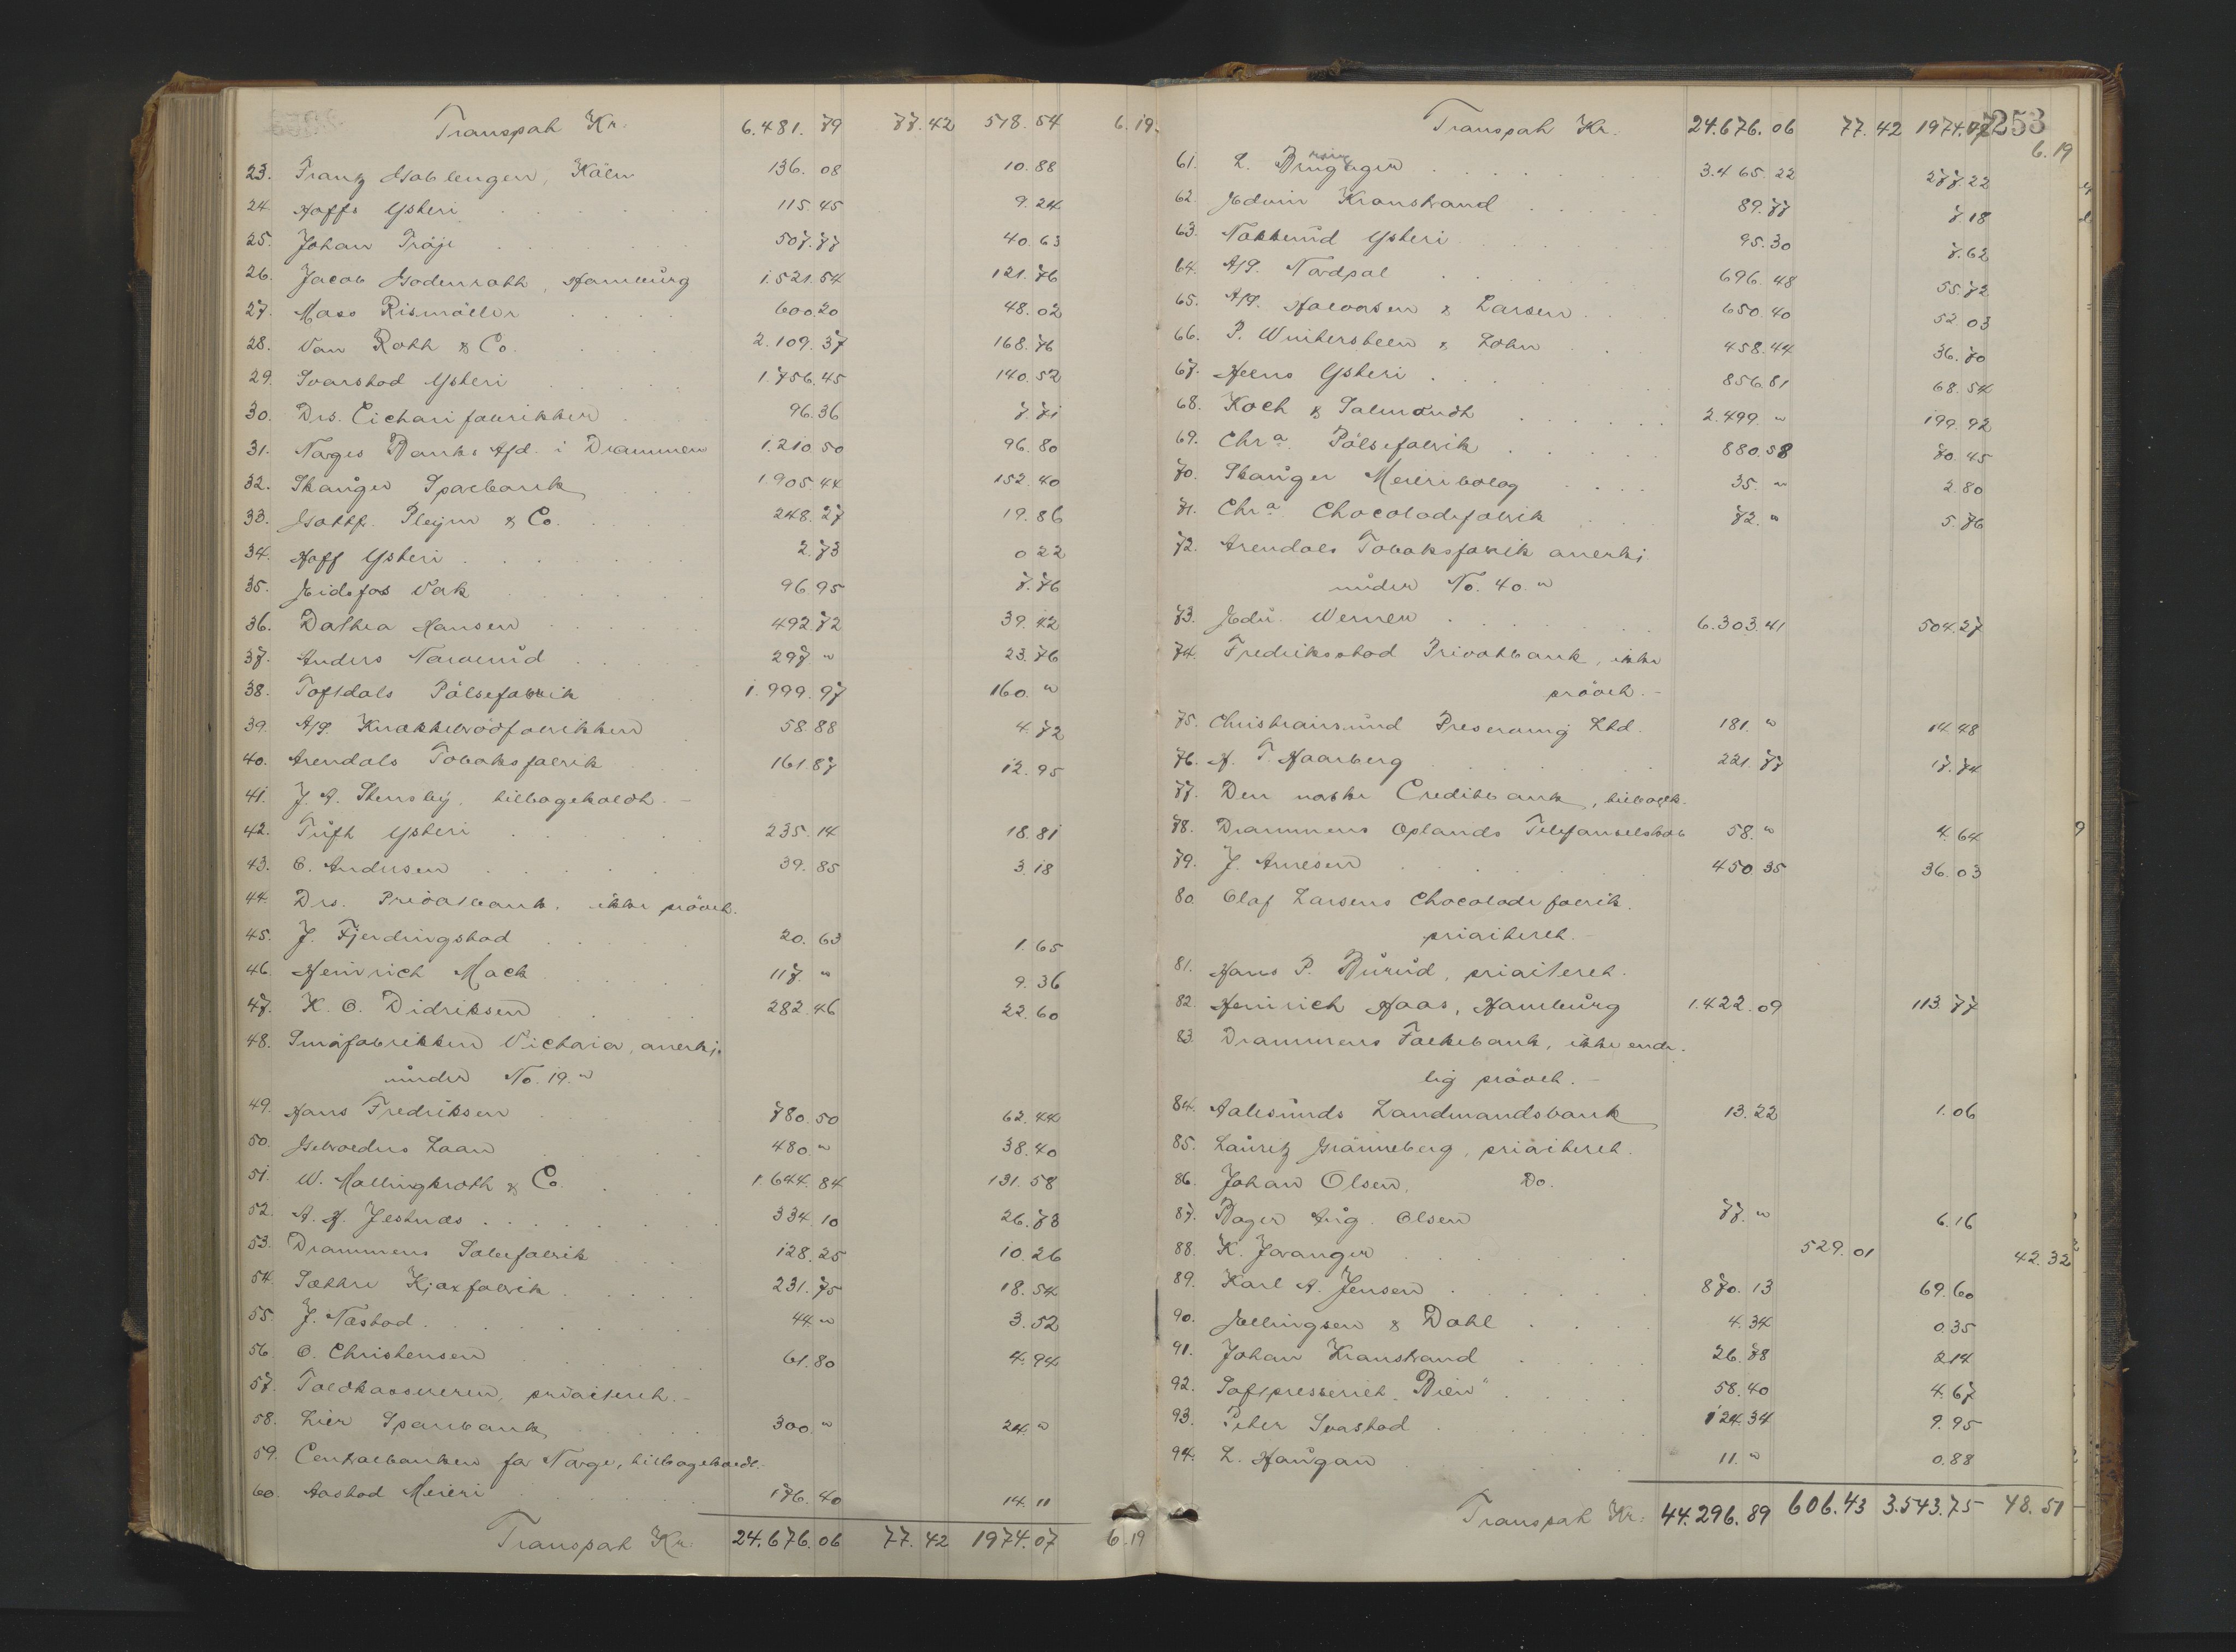 Transport Kr. 6.481.79 77.42 518.54 6.19.
23. Frantz Gablengen, Köln 136.08 10.88
24. Hoffs Ysteri 115.45 9.24
25. Johan Tröje 507.77 40.63
26. Jacob Godenrath, Hamburg 1.521.54 121.76
27. Mass Rismöller 600.20 48.02
28. Van Roth & Co. 2.109.37 168.76
29. Svarstad Ysteri 1.756.45 140.52
30. Drs. Cichorifabrikken 96.36 7.71
31. Norges Banks Afd. i Drammen 1.210.50 96.80
32. Skauger Sparebank 1.905.44 152.40
33. Gottf. Pleym & Co. 248.27 19.86
34. Hoff Ysteri 2.73 0.22
35. Eidsfos Værk 96.95 7.76
36. Dorthea Hansen 492.72 39.42
37. Anders Narverud 297 " 23.76
38. Toftdals Pölsefabrik 1.999.97 160. "
39. A/S. Knækkebrödfabrikken 58.88 4.72
40. Arendals Tobaksfabrik 161.87 12.95
41. J. A. Stensby, tilbagekaldt. -
42. Tuft Ysteri 235.14 18.81
43. C. Andersen 39.85 3.18
44. Drs. Privatbank. ikke prövet.
45. J. Fjerdingstad 20.63 1.65
46. Heinrich Mack 117. " 9.36
47. K. O. Didriksen 282.46 22.60
48. Smørfabrikken Victoria, anerkj.
under No. 19. "
49. Hans Fredriksen 780.50 62.44
50. Gebroeders Laan 480. " 38.40
51. W. Mallingkroth & Co. 1.644.84 131.58
52. A. H. Jestnæs 334.10 26.73
53. Drammens Sæbefabrik 128.25 10.26
54. Sætre Kjæxfabrik 231.75 18.54
55. J. Næstad. 44. " 3.52
56. O. Christensen 61.80 4.94
57. Toldkassereren, prioriteret. -
58. Lier Sparebank 300. " 24. "
59. Centralbanken for Norge, tilbagekaldt.
60. Aastad Meieri 176.40 14.11
Transport Kr. 24.676.06 77.42 1974.07 6.19
253
Transport Kr. 24.676.06 77.42 1974.07 6.19
61. L. 3.465.22 277.22
62. Edvin Kronstrand 89.77 7.18
63. Nakkerud Ysteri 95.30 7.62
64. A/S. Nordpol 696.48 55.72
65. A/S. Halvorsen & Larsen 650.40 52.03
66. P. Wintersteen & Sohn 458.44 36.70
67. Heens Ysteri 856.81 68.54
68. Koch & Salmondt 2.499. " 199.92
69. Chr.a Pölsefabrik 880.58 70.45
70. Skauger Meieribolag 35. " 2.80
71. Chr.a Chocoladefabrik 72. " 5.76
72. Arendals Tobaksfabrik anerkj.
under No. 40. "
73. Edu. Werner 6.303.41 504.27
74. Fredriksstad Privatbank, ikke
prövet. -
75. Christiansund Preserving Ltd. 181. " 14.48
76. H. T. Haarberg 221.77 17.74
77. Den norske Creditbank, tilbagek.
78. Drammens Oplands Telefonselskab 58. " 4.64
79. J. Arnesen 450.35 36.03
80. Olaf Larsens Chocoladefabrik.
prioriteret. -
81. Hans P. Burud, prioriteret.
82. Heinrich Haas, Hamburg 1.422.09 113.77
83. Drammens Folkebank, ikke ende-
lig prövet. -
84. Aalesunds Landmandsbank 13.22 1.06
85. Lauretz Grönneberg, prioriteret.
86. Johan Olsen, Do.
87. Bager Aug. Olsen 77. " 6.16
88. K. Joranger 529.01 42.32
89. Karl A. Jensen 870.13 69.60
90. Ellingsen & Dahl 4.34 0.35
91. Johan Kronstrand 26.78 2.14
92. Saftpresseriet "Bien" 58.40 4.67
93. Peter Svarstad 124.34 9.95
94. L. Haugan 11. " 0.88
Transport Kr: 44.296.89 606.43 3.543.75 48.51